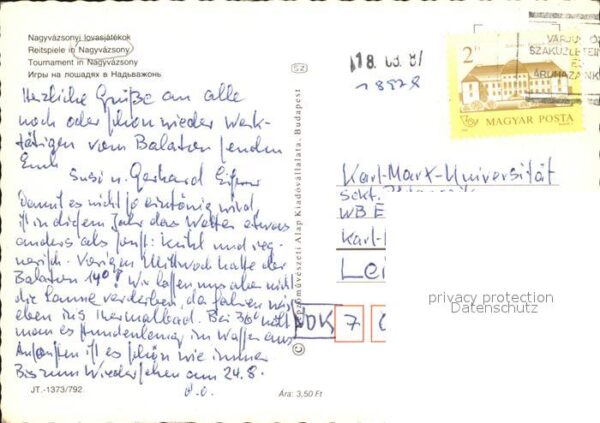 Nagyvázsonyi lovasjátékok
Reitspiele in Nagyvázsony
Tournament in Nagyvázsony
Игры на лошадях в Надьважонь
Herzliche Grüße an alle
noch oder schon wieder Werk-
tätigen vom Balaton senden
Euch
Susi u. Gerhard
Damit es nicht so eintönig wird
ist in diesem Jahr das Wetter etwas
anders als sonst: kühl und reg-
nerisch. Vorigen Mittwoch hatte der
Balaton 14°! Wir lassen uns aber nicht
die Laune verderben, da fahren wir
eben ins Thermalbad. Bei 36° hält
man es stundenlang im Wasser aus
Ansonsten ist es schön wie immer
Bis zum Wiedersehen am 24.8.
d.o.
JT.-1373/792
Ára: 3,50 Ft
SZ
© Képzőművészeti Alap Kiadóvállalata, Budapest
18578
2 Ft
MAGYAR POSTA
VÁRJUK
SZAKÜZLETEIN
ÉS
ÁRUHÁZAINK
Karl-Marx-Universität
Sekt.
WB E
Karl-
Lei
DDK 7
privacy protection
Datenschutz